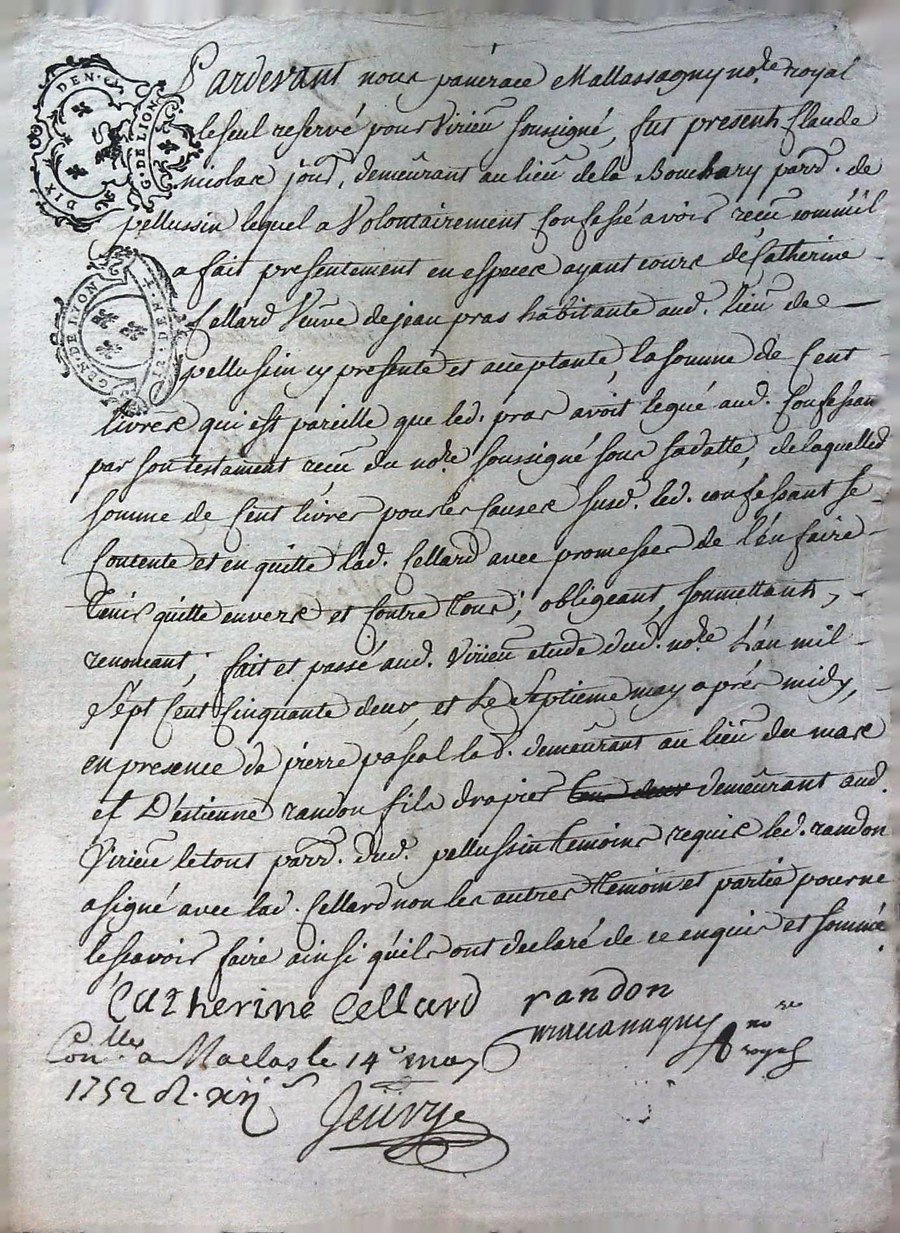 DIX DEN.
G. DE LION
GEN. DE LYON
Pardevant nous panćrace Mallassagny no.re royal
le seul reservé pour Virieu soussigné, fut present Claude
nicolas jour.d, demeurant au lieu de la Bouchary parr.d. de
pellussin lequel a Volontairement Confessé avoir reçu comm'il
a fait presentement en especes ayant cours de Catherine
Cellard Veuve de jean pras habitante aud. Lieu de
pellussin cy presente et acceptante, la somme de Cent
livres qui est pareille que led. pras avoit legué aud. Confessan
par son testament reçu du no.re soussigné sous sa datte, de laquelled
somme de Cent livres pour les Causes susd. led. confessant se
Contente et en quitte lad. Cellard avec promesses de l'en faire
tenir quitte envers et Contre tous; obligeant, soumettant,
renonceant; fait et passé aud. Virieu etude dud. no.re L'an mil
Sept Cent Cinquante deux, et le septieme may aprés midy,
en presence de pierre pascal lab.r demeurant au lieu du mas
et D'estienne randon fils drapier demeurant aud.
Virieu le tout parr.d. dud. pellussin temoins requis led. randon
a signé avec lad. Cellard non les autres temoin et partie pour ne
le sçavoir faire ainsi qu'ils ont declaré de ce enquis et sommé
Catherine Cellard randon
Mallassagny no.re royal
Con.lle a Maclas le 14e may
1752 R. xij s